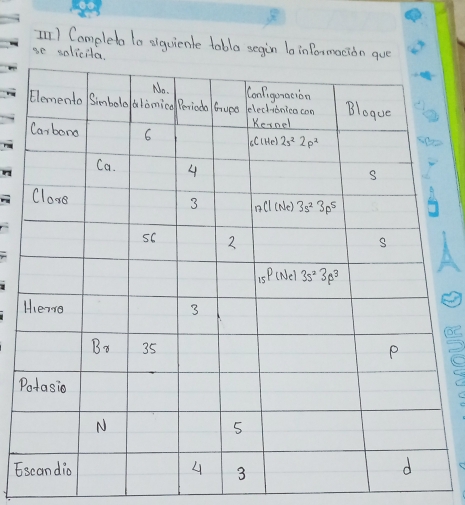 III) Completa la siguiente tabla según la información que
se solicita.
Elemento Simbolo No. atómico Periodo Grupo Configuración electrónica con Kernel Bloque
Carbono 6 ₆C(He) 2s² 2p²
Ca. 4 s
Cloro 3 ₁₇Cl (Ne) 3s² 3p⁵
56 2 s
₁₅P(Ne) 3s² 3p³
Hierro 3
Br 35 p
Potasio
N 5
Escandio 4 3 d